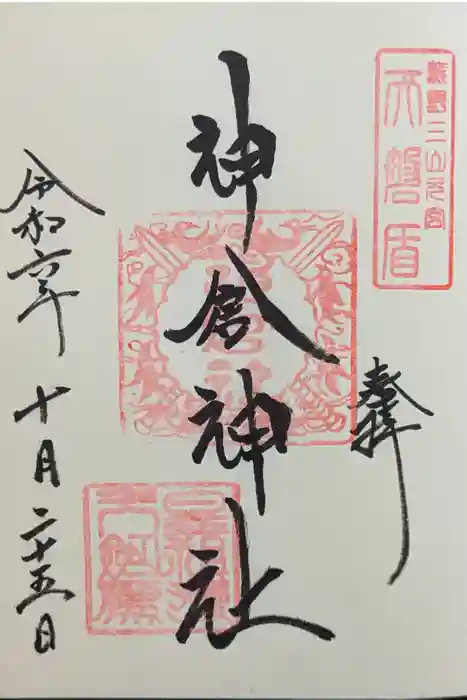 熊野三山元宮
天磐盾
奉拝
神倉神社
令和六年十月二十五日